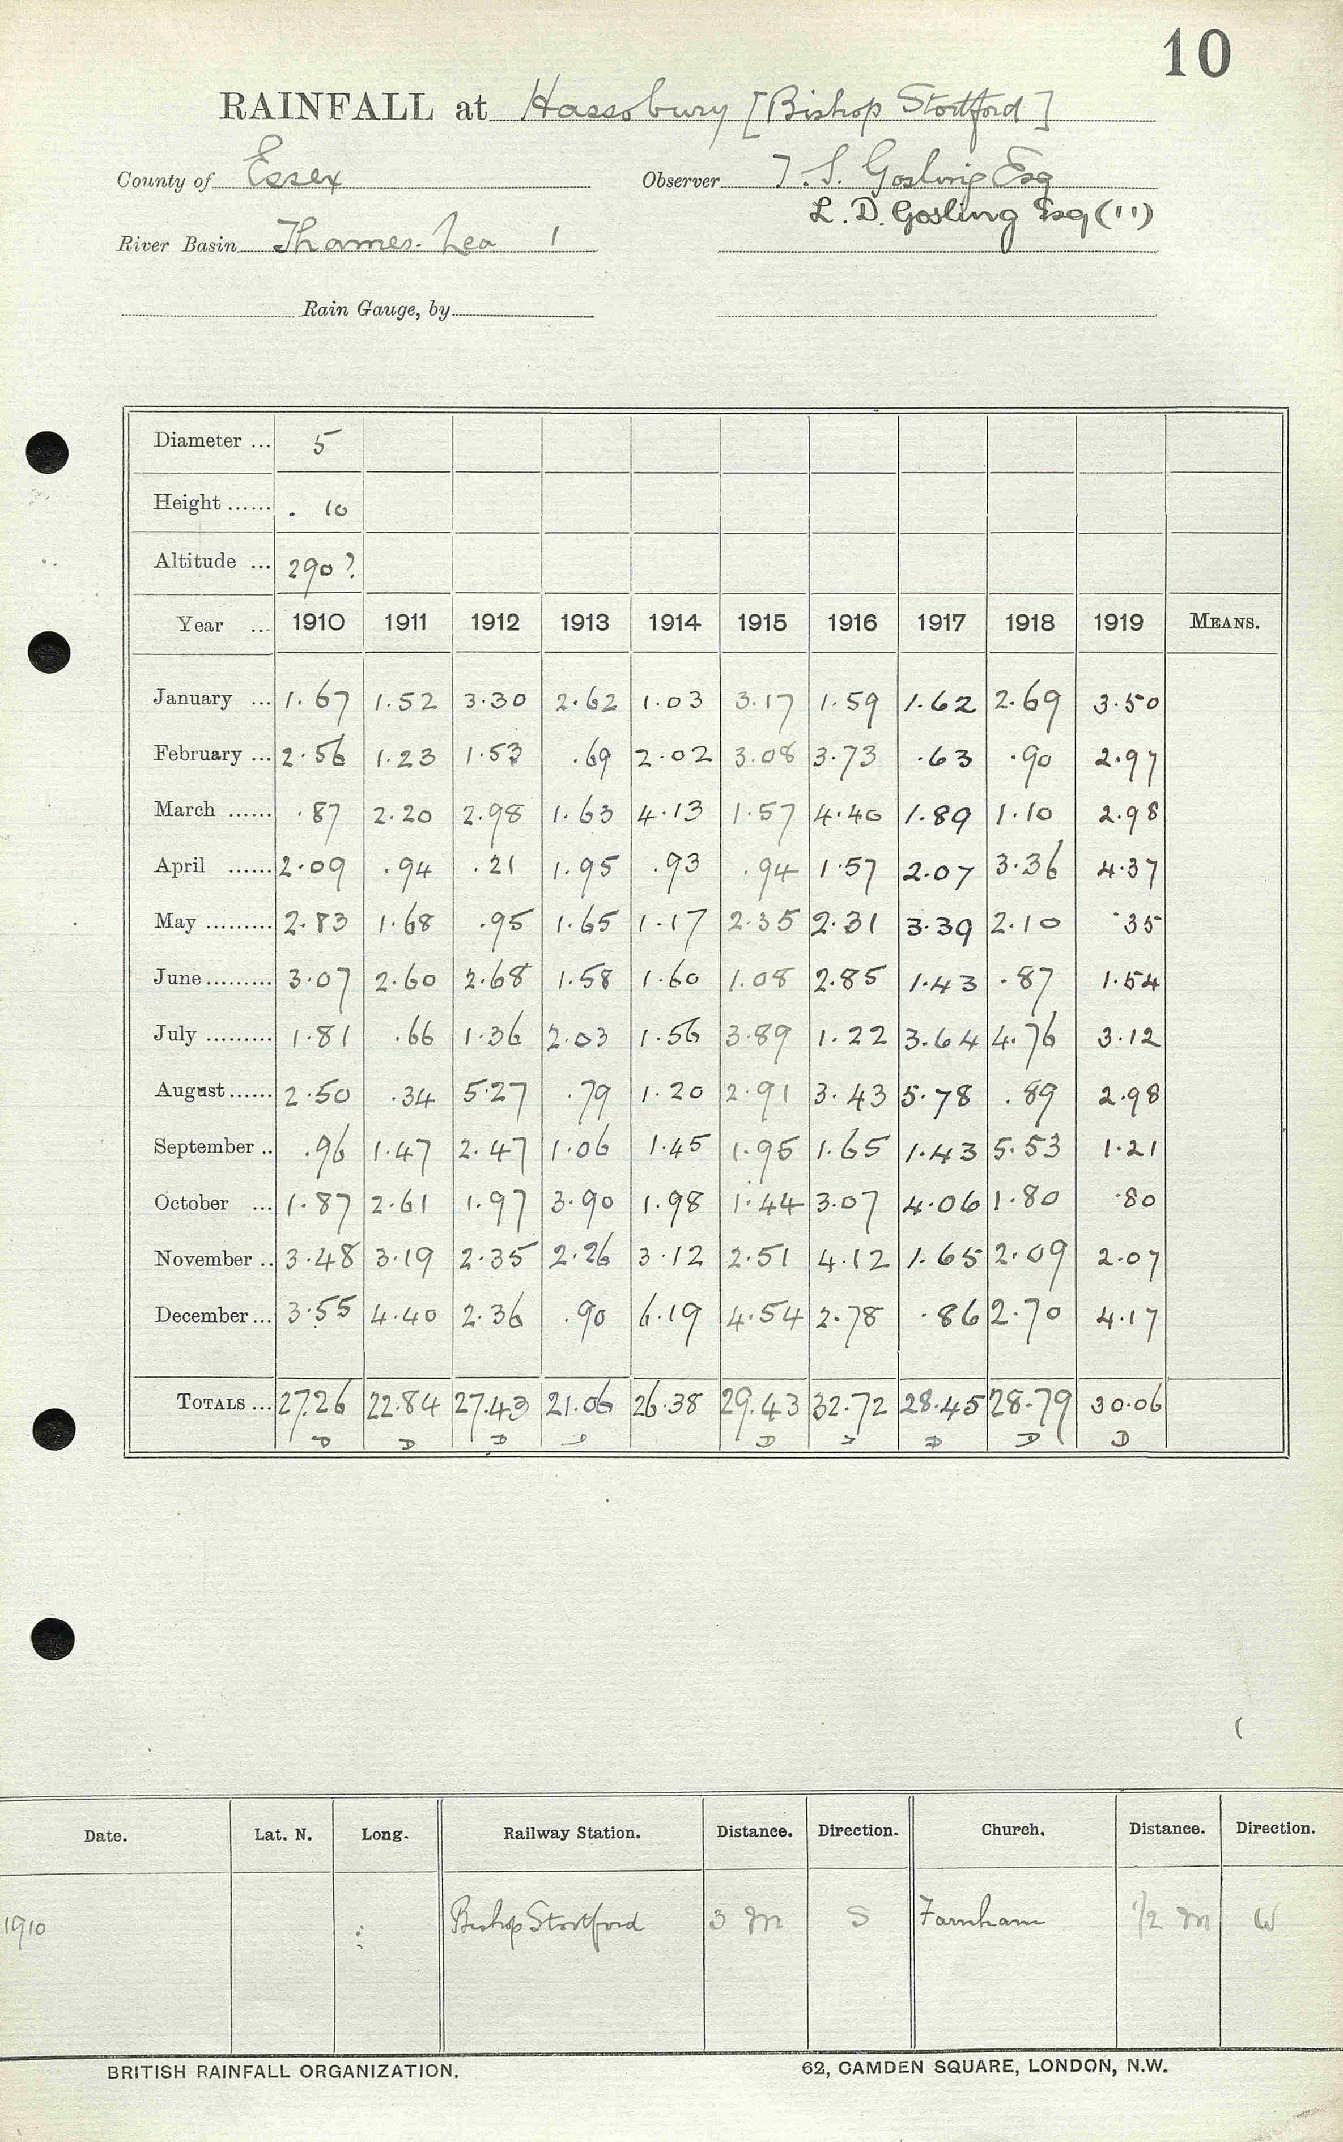 10
RAINFALL at Hassobury [Bishop Stortford]
County of Essex Observer T. S. Gosling Esq
L. D. Gosling Esq (11)
River Basin Thames-Lea 1
Rain Gauge, by
Diameter ... 5
Height ...... . 10
Altitude ... 290?
Year ... 1910 1911 1912 1913 1914 1915 1916 1917 1918 1919 MEANS.
January ... 1.67 1.52 3.30 2.62 1.03 3.17 1.59 1.62 2.69 3.50
February ... 2.56 1.23 1.53 .69 2.02 3.08 3.73 .63 .90 2.97
March ...... .87 2.20 2.98 1.63 4.13 1.57 4.40 1.89 1.10 2.98
April ...... 2.09 .94 .21 1.95 .93 .94 1.57 2.07 3.36 4.37
May ......... 2.83 1.68 .95 1.65 1.17 2.35 2.31 3.39 2.10 .35
June ......... 3.07 2.60 2.68 1.58 1.60 1.08 2.85 1.43 .87 1.54
July ......... 1.81 .66 1.36 2.03 1.56 3.89 1.22 3.64 4.76 3.12
August ...... 2.50 .34 5.27 .79 1.20 2.91 3.43 5.78 .89 2.98
September .. .96 1.47 2.47 1.06 1.45 1.95 1.65 1.43 5.53 1.21
October ... 1.87 2.61 1.97 3.90 1.98 1.44 3.07 4.06 1.80 .80
November .. 3.48 3.19 2.35 2.26 3.12 2.51 4.12 1.65 2.09 2.07
December ... 3.55 4.40 2.36 .90 6.19 4.54 2.78 .86 2.70 4.17
TOTALS ... 27.26 22.84 27.43 21.06 26.38 29.43 32.72 28.45 28.79 30.06
D D D D D D D D D
Date. Lat. N. Long. Railway Station. Distance. Direction. Church. Distance. Direction.
1910 Bishop Stortford 3 m S Farnham 1/2 m W
BRITISH RAINFALL ORGANIZATION. 62, CAMDEN SQUARE, LONDON, N.W.